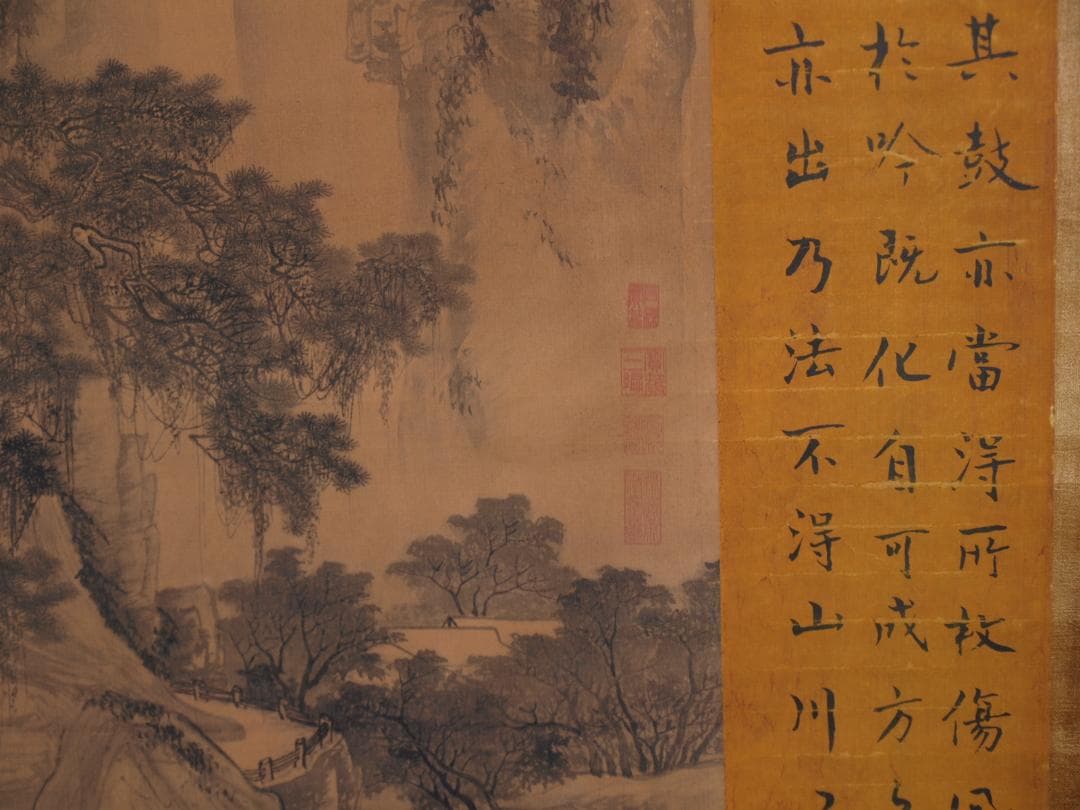 其鼓亦當得所放傷
於吟既化自可成方
亦出乃法不得山川